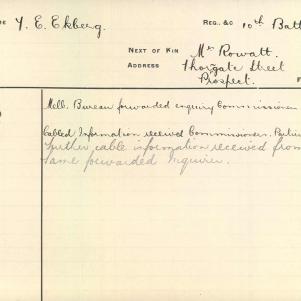 Y. E. Ekberg.
REG. &C 10th Batt
NEXT OF KIN Mr Rowatt.
ADDRESS Thorgate Street
Prospect.
Melb. Bureau forwarded enquiry Commissioner
Cabled Information received Commissioners.
further cable information received from
same forwarded inquirer.